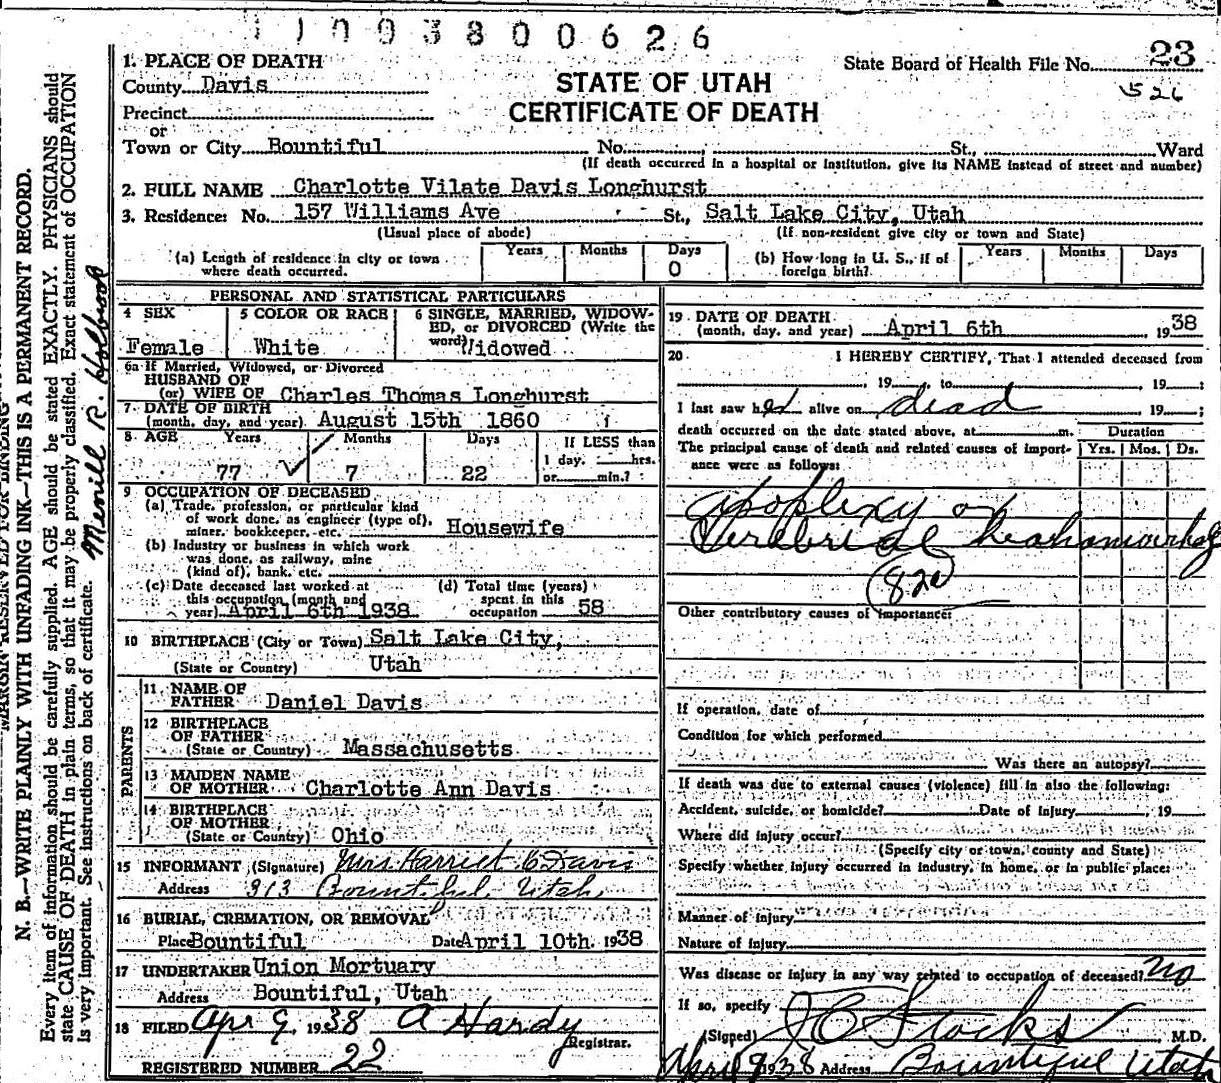 1 1 0 0 3 8 0 0 6 2 6
23
State Board of Health File No.
526
STATE OF UTAH
CERTIFICATE OF DEATH
1. PLACE OF DEATH
County Davis
Precinct
or
Town or City Bountiful No. St., Ward
(If death occurred in a hospital or institution, give its NAME instead of street and number)
2. FULL NAME Charlotte Vilate Davis Longhurst
3. Residence: No. 157 Williams Ave St., Salt Lake City, Utah
(Usual place of abode) (If non-resident give city or town and State)
(a) Length of residence in city or town where death occurred. Years Months Days 0
(b) How long in U. S., if of foreign birth? Years Months Days
PERSONAL AND STATISTICAL PARTICULARS
4 SEX Female
5 COLOR OR RACE White
6 SINGLE, MARRIED, WIDOWED, or DIVORCED (Write the word) Widowed
6a If Married, Widowed, or Divorced
HUSBAND OF
(or) WIFE OF Charles Thomas Longhurst
7 DATE OF BIRTH
(month, day, and year) August 15th 1860
8 AGE Years Months Days If LESS than
77 7 22 1 day, hrs.
or min.?
9 OCCUPATION OF DECEASED
(a) Trade, profession, or particular kind
of work done, as engineer (type of),
miner, bookkeeper, etc. Housewife
(b) Industry or business in which work
was done, as railway, mine
(kind of), bank, etc.
(c) Date deceased last worked at
this occupation (month and
year) April 6th 1938
(d) Total time (years)
spent in this
occupation 58
10 BIRTHPLACE (City or Town) Salt Lake City,
(State or Country) Utah
PARENTS
11 NAME OF
FATHER Daniel Davis
12 BIRTHPLACE
OF FATHER
(State or Country) Massachusetts
13 MAIDEN NAME
OF MOTHER Charlotte Ann Davis
14 BIRTHPLACE
OF MOTHER
(State or Country) Ohio
15 INFORMANT (Signature) Mrs Harriet C Davis
Address 313 Bountiful, Utah
16 BURIAL, CREMATION, OR REMOVAL
Place Bountiful Date April 10th. 1938
17 UNDERTAKER Union Mortuary
Address Bountiful, Utah
18 FILED Apr 9 1938 A Hardy
Registrar.
REGISTERED NUMBER 22
19 DATE OF DEATH
(month, day, and year) April 6th 1938
20 I HEREBY CERTIFY, That I attended deceased from
, 19 , to , 19 ;
I last saw her alive on dead , 19 ;
death occurred on the date stated above, at m. Duration
The principal cause of death and related causes of importance were as follows: Yrs. Mos. Ds.
apoplexy or
Cerebrial
82a
Other contributory causes of importance:
If operation, date of
Condition for which performed
Was there an autopsy?
If death was due to external causes (violence) fill in also the following:
Accident, suicide, or homicide? Date of injury , 19
Where did injury occur?
(Specify city or town, county and State)
Specify whether injury occurred in industry, in home, or in public place:
Manner of injury
Nature of injury
Was disease or injury in any way related to occupation of deceased? No
If so, specify
(Signed) J C Stocks , M.D.
April 9 1938 Address Bountiful Utah
MARGIN RESERVED FOR BINDING
N. B.—WRITE PLAINLY WITH UNFADING INK—THIS IS A PERMANENT RECORD.
Every item of information should be carefully supplied. AGE should be stated EXACTLY. PHYSICIANS should
state CAUSE OF DEATH in plain terms, so that it may be properly classified. Exact statement of OCCUPATION
is very important. See instructions on back of certificate.
Merrill R. Holbrook